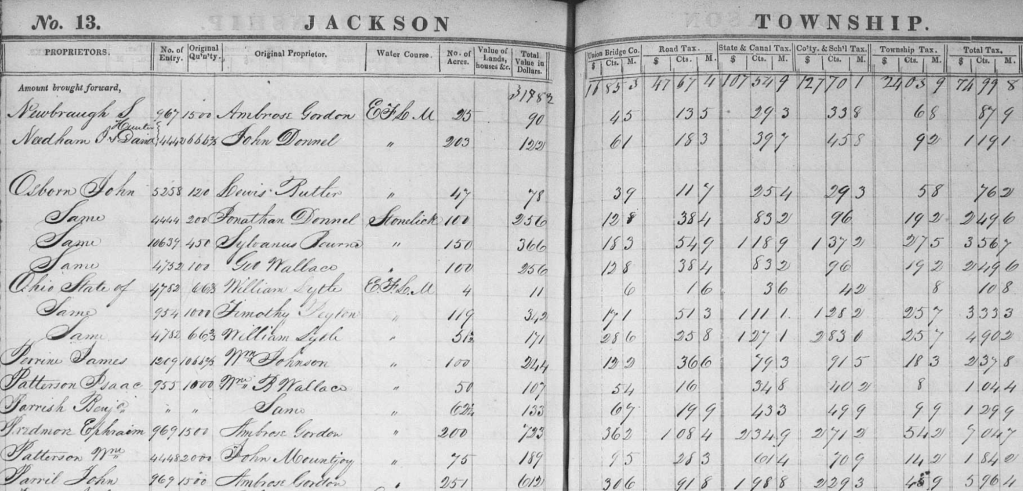 No. 13. JACKSON TOWNSHIP.
PROPRIETORS. No. of Entry. Original Qu'n'ty. Original Proprietor. Water Course. No. of Acres. Value of Lands, houses &c. Total Value in Dollars. Union Bridge Co. $ Cts. M. Road Tax. $ Cts. M. State & Canal Tax. $ Cts. M. Co'ty. & Sch'l Tax. $ Cts. M. Township Tax. $ Cts. M. Total Tax. $ Cts. M.
Amount brought forward, 31782 16 85 3 47 67 4 107 54 9 127 70 1 24 03 9 74 99 8
Newbraugh S 967 1500 Ambrose Gordon E F L M 25 90 45 135 293 338 68 879
Needham & David 4442 666⅔ John Donnel " 203 122 61 183 397 458 92 1191
Osborn John 5258 120 Lewis Butler " 47 78 39 117 254 293 58 762
Same 4444 200 Jonathan Donnel Stonelick 100 256 128 384 832 96 192 2496
Same 10639 450 Sylvanus Bourne " 150 366 183 549 1189 1372 275 3567
Same 4752 100 Geo Wallace " 100 256 128 384 832 96 192 2496
Ohio State of 4782 663 William Lytle E F L M 4 11 6 16 36 42 8 108
Same 954 1000 Timothy Peyton " 119 342 171 513 1111 1282 257 3333
Same 4782 663 William Lytle " 171 286 258 1271 2830 257 4902
Perrine James 1209 Wm Johnson " 100 244 122 366 793 915 183 2378
Patterson Isaac 955 1000 Wm B Wallace " 50 107 54 16 348 402 8 1044
Parrish Benj " " Same " 62½ 133 67 199 433 499 99 1299
Predmore Ephraim 969 1500 Ambrose Gordon " 200 723 362 1084 2349 2712 542 7047
Patterson Wm 4448 2000 John Mountjoy " 75 189 95 283 614 709 142 1842
Parril John 969 1500 Ambrose Gordon " 251 612 306 918 1988 2293 459 5964